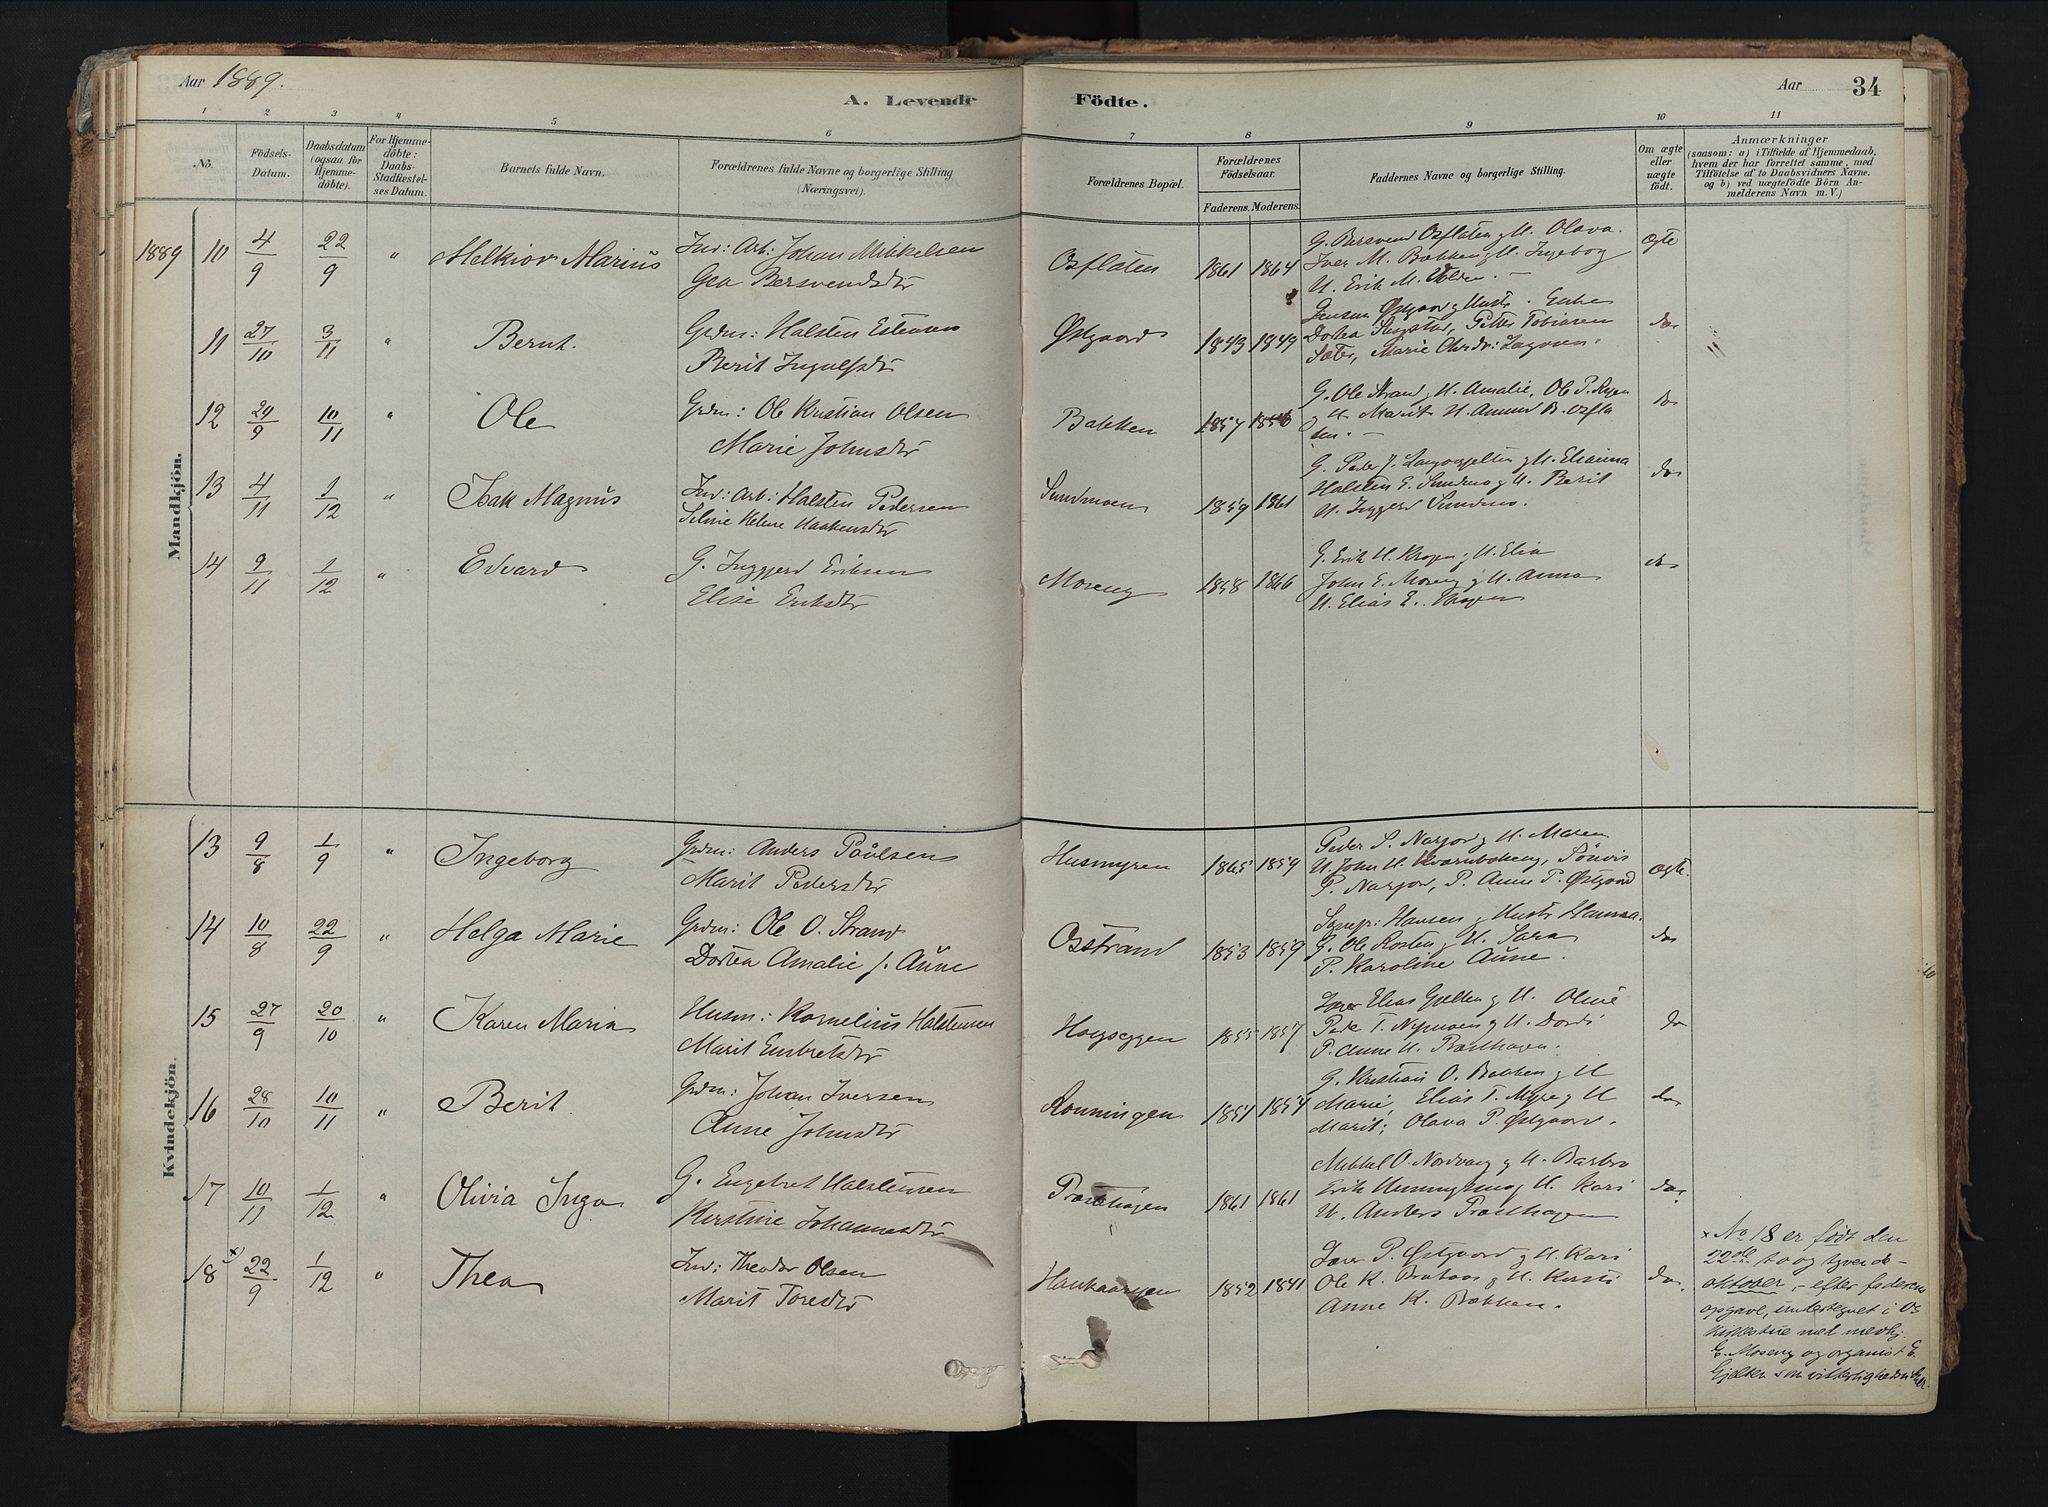 Aar 1889.
A. Levende Födte.
Aar 34
1 2 3 4 5 6 7 8 9 10 11
No. Födsels-Datum. Daabsdatum (ogsaa for Hjemme-döbte). For Hjemme-döbte: Daabs-Stadfæstel-ses Datum. Barnets fulde Navn. Forældrenes fulde Navne og borgerlige Stilling (Næringsvei). Forældrenes Bopæl. Forældrenes Födselsaar. Faderens. Moderens. Faddernes Navne og borgerlige Stilling. Om ægte eller uægte födt. Anmærkninger (saasom: a) i Tilfælde af Hjemmedaab, hvem der har forrettet samme, med Tilföielse af to Daabsvidners Navne, og b) ved uægtefödte Börn An-melderens Navn m. V.)
Mandkjön.
1889 10 4/9 22/9 " Melkior Marius Inv: Arb: Johan Mikkelsen
Gea Bersvendsdtr
Osfloten 1861 1864
G. Bersvend Osfloten g H. Olava.
Iver M. Bakken g H. Ingebog
U. Erik M. Volden. —
Ægte
11 27/10 3/11 " Bernt. Grdm: Halsten Estensen
Berit Ingulfsdtr
Østgaard 1843 1849
Jensen Østgaard g Hustr. Enke
Dortea, Petter Tobiasen
Sæter, Marie
do
12 29/9 10/11 " Ole Grdm: Ole Kristian Olsen
Marie Johnsdtr
Bakken 1857 1856
G. Ole Strand g H. Amalie, Ole P. Rygen
g H. Marit U. Amund B. Osflo
ten. —
do
13 4/11 1/12 " Isak Magnus Inv: Arb: Halsten Pedersen
Seline Helene Haakensdtr
Sundmoen 1859 1861
G. Peder J. g H. Elianna
Halsten E. Sundmo g H. Berit
U. Inggerd Sundmo.
do
14 9/11 1/12 " Edvard G. Inggerd Eriksen
Elise Eriksdtr
Moseng 1858 1866
G. Erik H. Krogen g H. Elia
John E. Moseng g H. Anna
U. Elias E. Krogen
do
Kvindekjön.
13 9/8 1/9 " Ingeborg Grdm: Anders Paulsen
Marit Pedersdtr
Husmyren 1865 1859
Peder P. Narjord g H. Maren
U. John H. Kvernbokeng, Sönvis
P. Narjord, P. Anne P. Østgaard
Ægte.
14 10/8 22/9 " Helga Marie Grdm: Ole O. Strand
Dortea Amalie J. Aune
Osstrand 1853 1859
Hansen g Hustr Hanna.
G. Ole Rosten g H. Sara
P. Karoline Aune.
do
15 27/9 20/10 " Karen Maria Husm: Kornelius Halstensen
Marit Embretsdtr
Haugseggen 1855 1857
Elias Gjelten g H. Oline
Peder T. Nymoen g H. Dordi
P. Anne H. Præsthagen.
do
16 28/10 10/11 " Berit. Grdm: Johan Iversen
Anne Johnsdtr
Ronningen 1854 1854
G. Kristian O. Bakken g H
Marie, Elias T. Myre g H
Marit; Olava P. Østgaard.
do
17 10/11 1/12 " Olivia Inga G. Engebret Halstensen
Kirstine Johannesdtr
Præsthagen 1861 1861
Mikkel O. Nordvang g H. Barbro
Erik Hummelmo g H. Kari
U. Anders Præsthagen
do
18 x) 22/9 1/12 " Thea Inv: Theodor Olsen
Marit Toresdtr
Haukaasen 1852 1841
Iver P. Østgaard g H. Kari
Ole K. Brataas g H. Kirsti
Anne K. Bakken.
do.
x No 18 er født den
22de to og tyvende
oktober, – efter faderens
opgave, undertegnet i Os
kirkestue med medhj.
E. Moseng og organist E.
Gjelten som vitterlighedsvidner.